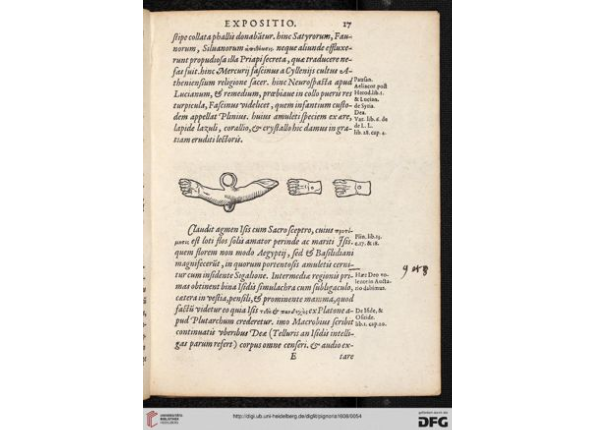 EXPOSITIO. 17
stipe collata phallis donabātur. hinc Satyrorum, Fau-
norum, Siluanorum neque aliunde effluxe-
runt propudiosa illa Priapi secreta, quæ traducere ne-
fas fuit. hinc Mercurij fascinus a Cyllenijs cultus A-
theniensium religione sacer. hinc Neurospasta apud
Lucianum, & remedium, præbiaue in collo pueris res
turpicula, Fascinus videlicet, quem infantium custo-
dem appellat Plinius. huius amuleti speciem ex ære,
lapide lazuli, corallio, & crystallo hic damus in gra-
tiam eruditi lectoris.
Pausan.
Aeliacōn post
Herod. lib. 2.
& Lucian.
de Syria
Dea.
Var. lib. 6. de
de L. L.
lib. 28. cap. 4.
Claudit agmen Isis cum Sacro sceptro, cuius
est lotς flos solis amator perinde ac mariti Isis
quem florem non modo Aegyptij, sed & Basilidiani
magnifecerūt, in quorum portentosis amuletis cerni-
tur cum insidente Sigalione. Intermedia regionis pri-
mas obtinent bina Isidis simulachra cum subligaculo,
cætera in vestia, pensili, & prominente mamma, quod
factū videtur eo quia Isis ex Platone a-
pud Plutarchum crederetur. imo Macrobius scribit
continuatis vberibus Deæ (Telluris an Isidis intelli-
gas parum refert) corpus omne censeri. & audio ex-
E tare
Plin. lib. 13.
c. 17. & 18.
Hæc Deo vo-
lente in Aucta-
rio dabimus.
De Iside, &
Osiride.
lib. 1. cap. 20.
UNIVERSITÄTS-
BIBLIOTHEK
HEIDELBERG
http://digi.ub.uni-heidelberg.de/diglit/pignoria1608/0054
gefördert durch die
DFG